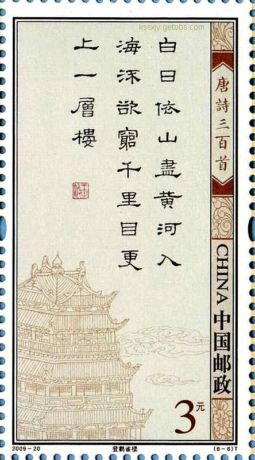 kssxjy.getbbs.com
唐詩三百首
白日依山盡黄河入
海流欲窮千里目更
上一層樓
CHINA 中国邮政
3元
2009-20
登鹳雀楼
(6-6)T